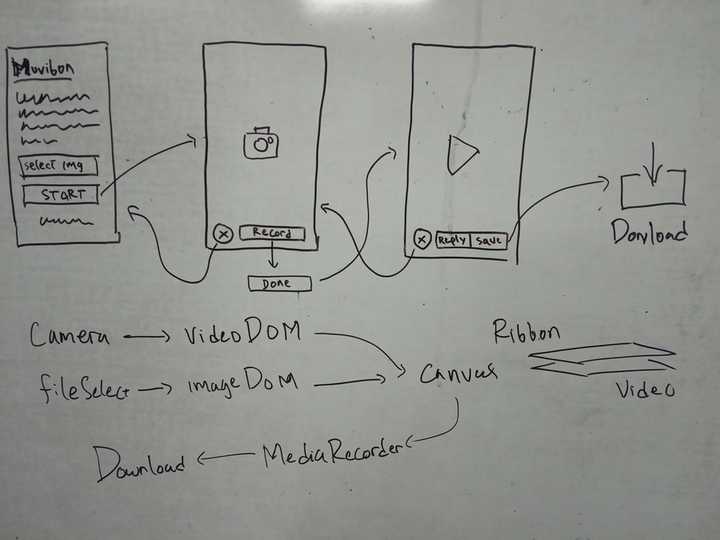 Movibon
select img
START
Record
Done
Reply
save
Donload
Camera
videoDOM
Ribbon
fileSelect
imageDOM
Canvas
Video
Download
MediaRecorder